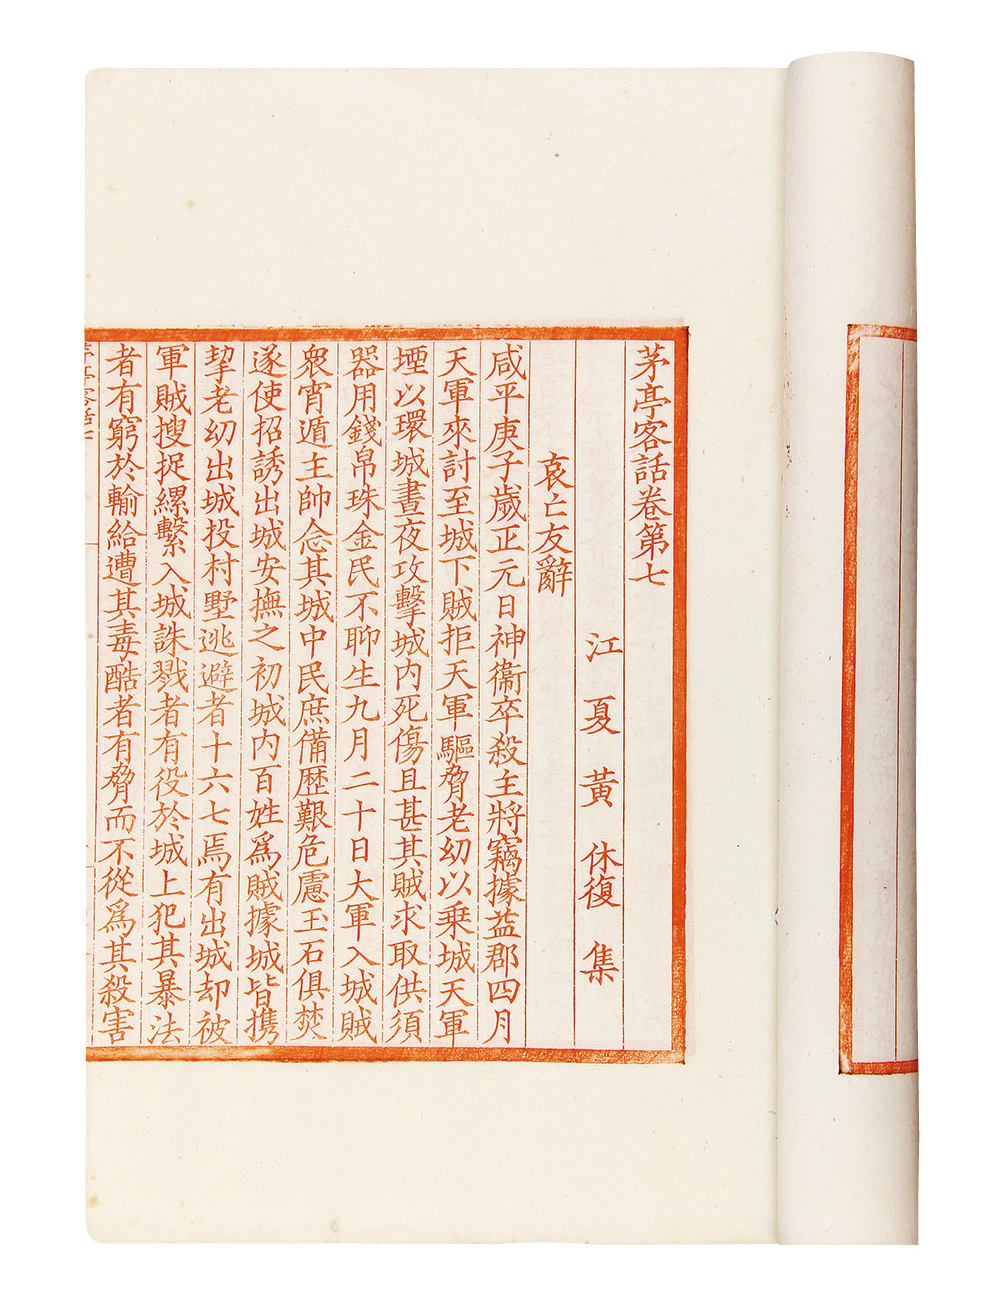 茅亭客話卷第七
江夏黃休復集
哀亡友辭
咸平庚子歲正元日神衞卒殺主將竊據益郡四月
天軍來討至城下賊拒天軍驅脅老幼以乗城天軍
堙以環城晝夜攻擊城内死傷且甚其賊求取供須
器用錢帛珠金民不聊生九月二十日大軍入城賊
衆宵遁主帥念其城中民庶備歷艱危慮玉石俱焚
遂使招誘出城安撫之初城内百姓爲賊據城皆携
挈老幼出城投村墅逃避者十六七焉有出城却被
軍賊搜捉縲繫入城誅戮者有役於城上犯其暴法
者有窮於輸給遭其毒酷者有脅而不從爲其殺害